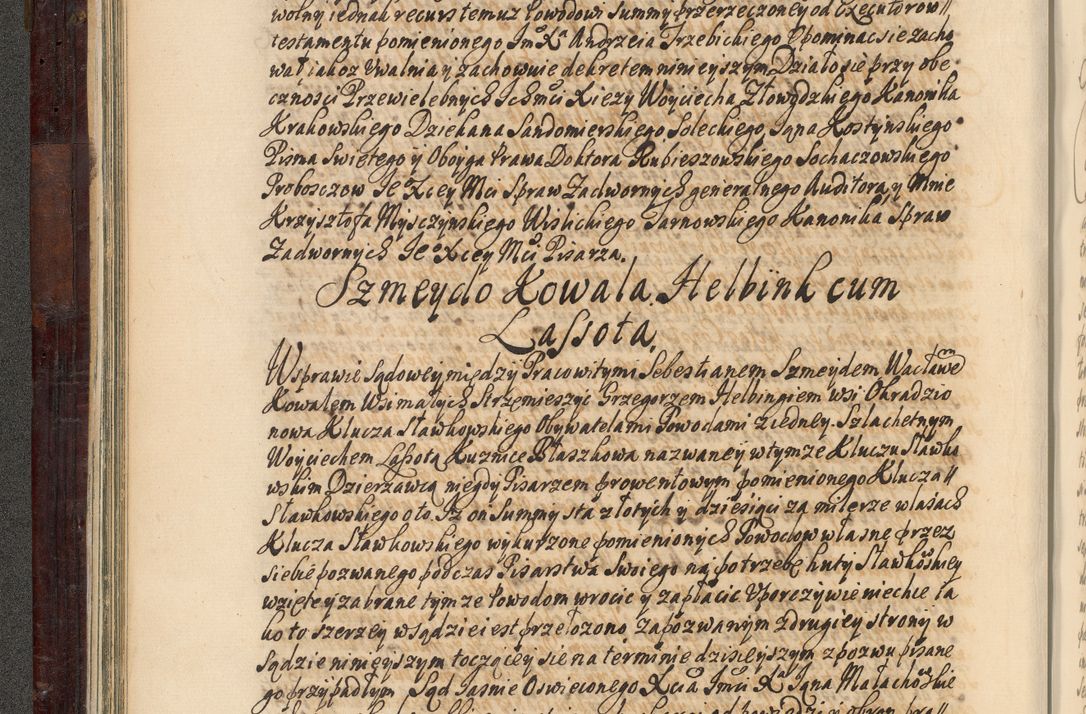 wolny iednak recurs temuz Powodowi Summy przerzeczoney od Executorow//
testamentu pomienionego Jmͦ Xᵃ Andrzeia Trzebickiego Upominac sie zacho
wał iakoz Uwalnia y zachowuie dekretem ninieyszym Działo się przy obe
cznosci Przewielebnych Ichmci Xiezy Woyciecha Złowodzkiego Kanonika
Krakowskiego Dziekana Sandomierskiego Soleckiego, Jgna Kostynskiego
Pisma Swiętego y Oboyga Prawa Doktora Rubieszowskiego Sochaczowskiego
Proboszczow Je Xcey Mci Spraw Zadwornych generalnego Auditora, y Mnie
Krzysztofa Mysczynskiego Wislickiego Tarnowskiego Kanonika Spraw
Zadwornych Jeͦ Xcey Mci Pisarza.
Szmeydo Kowala. Helbink cum
Lassota.
W sprawie sądowey między Pracowitymi Sebestianem Szmeydem Wacławᵐe
Kowalem Wsi małych Strzemieszyc Grzegorzem Helbingiem wsi Okradzio
nowa Klucza Sławkowskiego Obywatelami Powodami z iedney. Szlachetnym
Woyciechem Lassotą Kuznice Błaszkowa nazwaney w tymze Kluczu Sławko
wskim Dzierzawcą niegdy Pisarzem prowentowym pomienionego Klucza//
Sławkowskiego o to. Iz on Summy sta złotych y dziesięci za milerze w lasach
Klucza Sławkowskiego wykurzone pomienionych Powodow własne przez
siebie pozwanego podczas Pisarstwa Swoiego na potrzebę huty Sławkoskiey
wzięte y zabrane tymze Powodom wrocic y zapłacic Uporczywie niechce ia
ko to szerzey w sądzie iest przełozono, Zapozwanym z drugiey strony w
Sądzie ninieyszym toczącey sie na terminie dzisieyszym z pozwu pisane
go przypadłym Sąd Jasnie Oswieconego Xcia Jmci Xᵃ Jgna Małachoskie